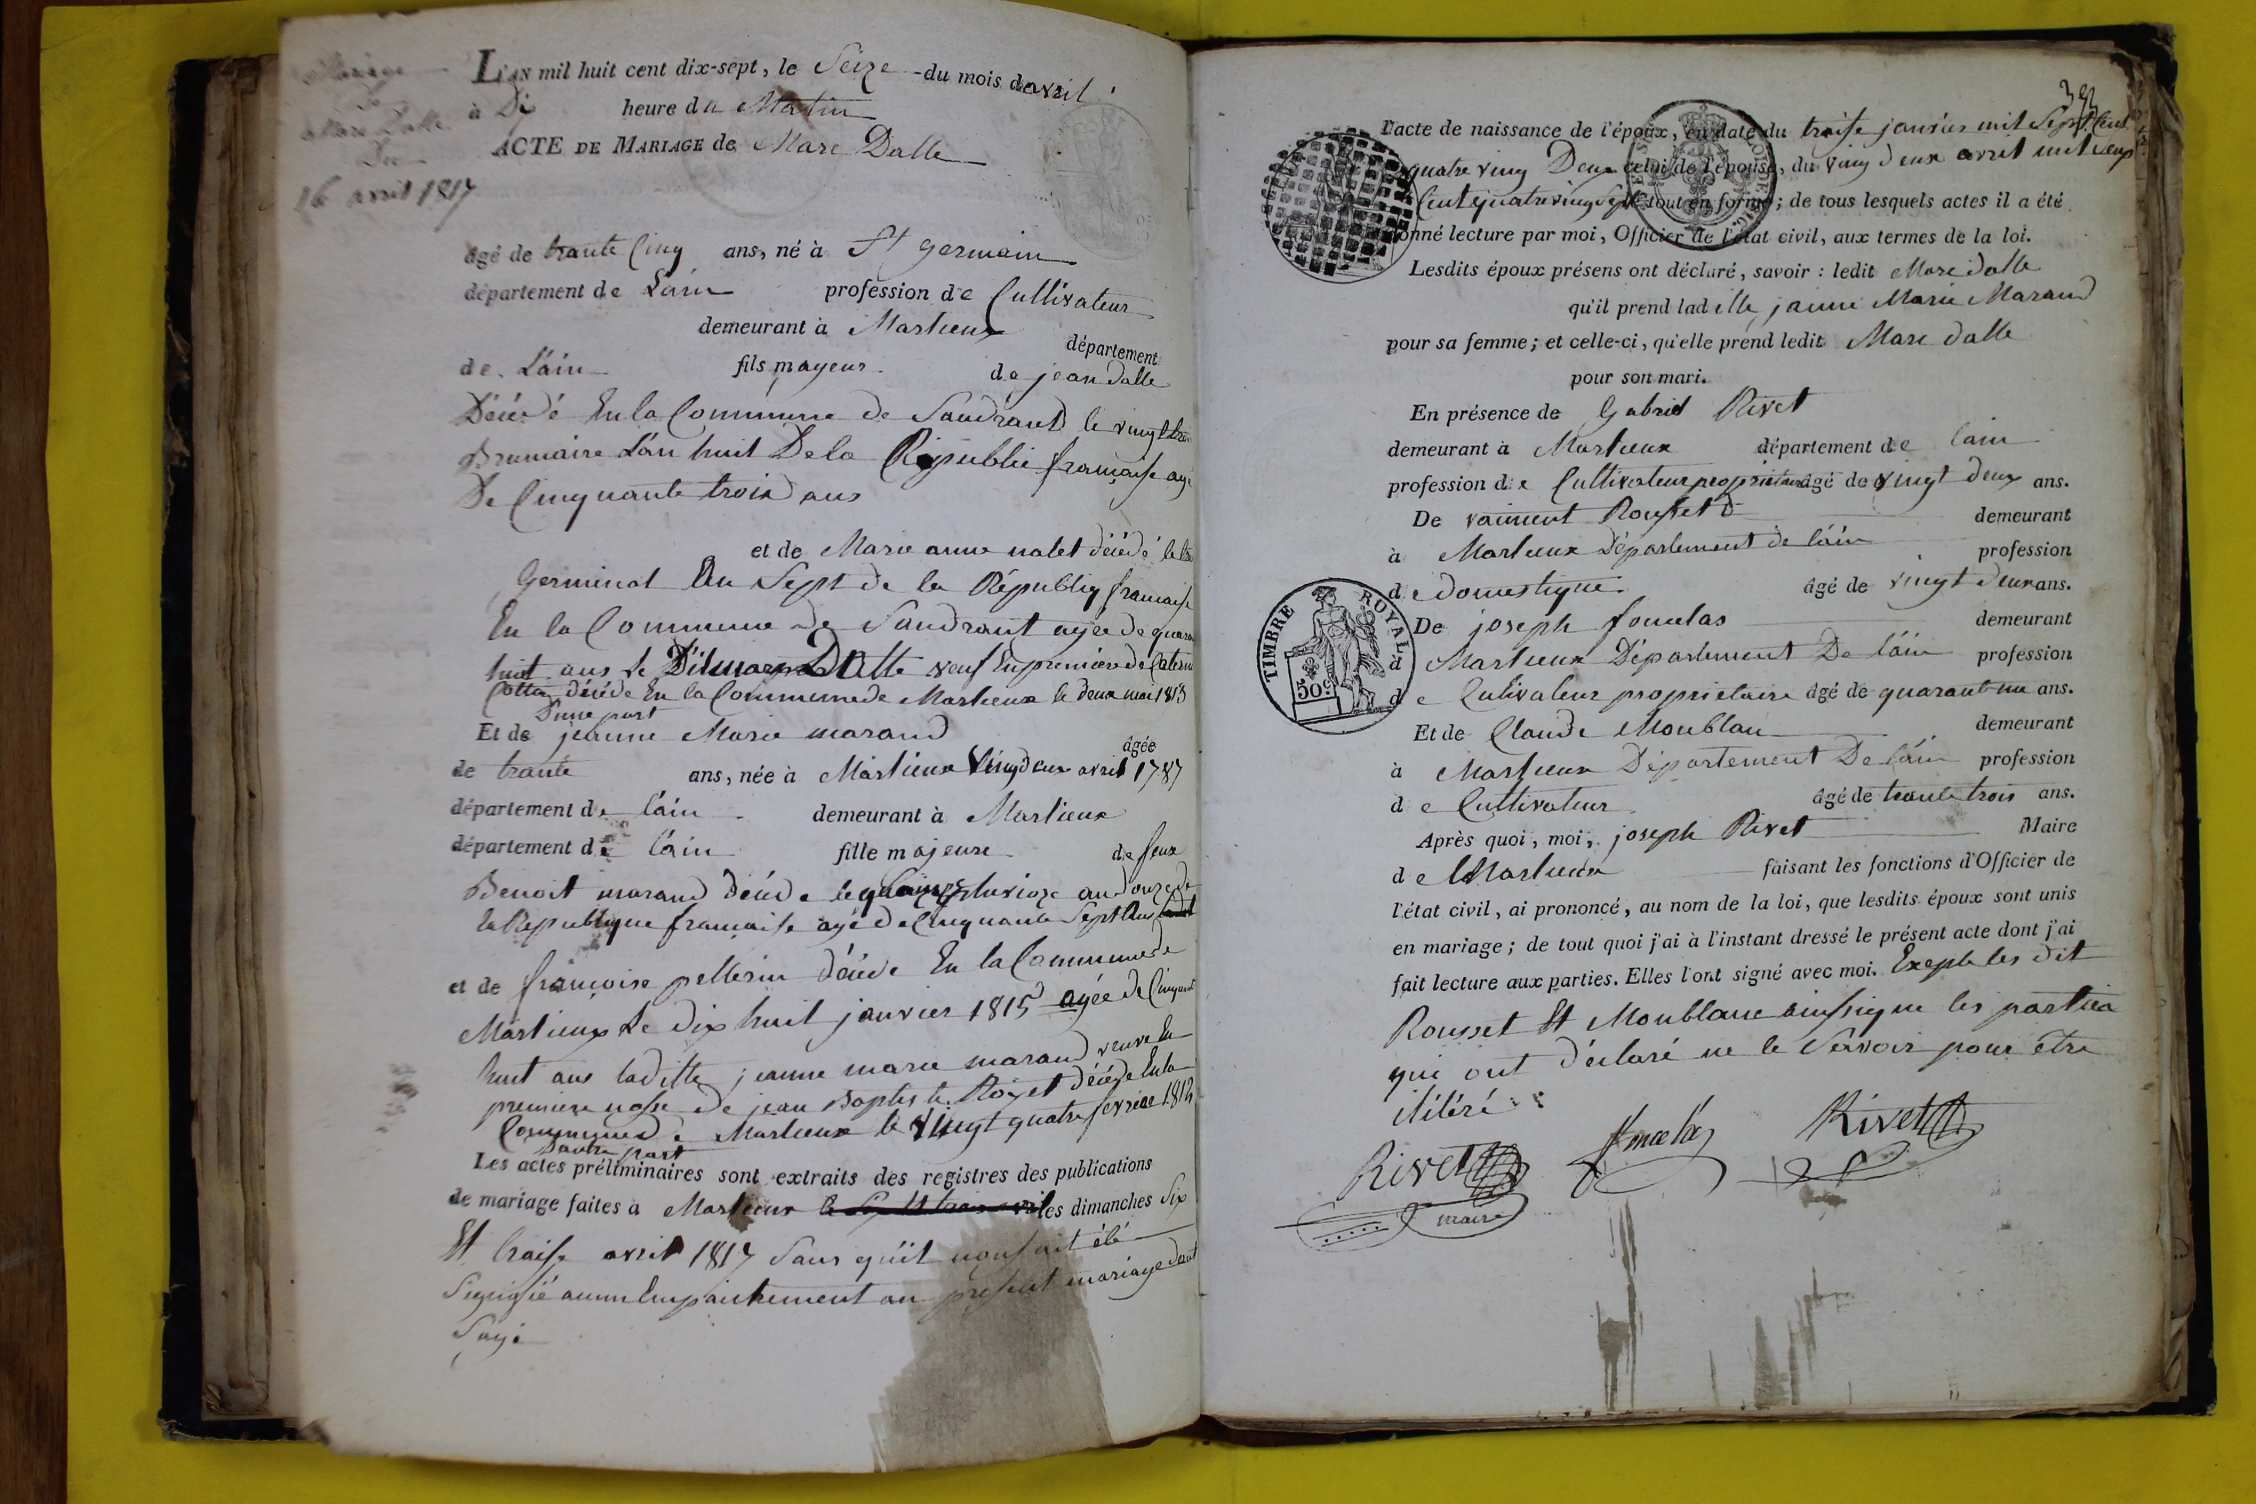 Mariage
De
Marc Dalle
Du
16 avril 1817
L'AN mil huit cent dix-sept, le Seize du mois davril
à Dix heure du Matin
ACTE DE MARIAGE de Marc Dalle
âgé de trante Cinq ans, né à St germain
département de L'ain profession de Cultivateur
demeurant à Marlieux département
de L'ain fils mayeur de jean Dalle
Décédé En la Commune de Sandrant le vingt
Brumaire L'an huit De la Républic française agé
De Cinquante trois ans
et de Marie anne nalet décédé le
Germinal An Sept de la Républiq française
En la Commune de Sandrant agée de
huit ans le Dit marc Dalle veuf En premiere de
Cottin décéde En la Commune de Marlieux le deux mai 1815
D'une part
Et de jeanne Marie marand âgée
de trante ans, née à Marlieux Vingdeux avril 1787
département de lain demeurant à Marlieux
département de l'ain fille majeure de feux
Benoit marand décéde le pluvioze an douze de
la Republique française agé de Cinquante Sept Ans
et de françoise pellerin décéde En la Commune de
Marlieux Le dix huit janvier 1815 agée de
huit ans laditte jeanne marie marand veuve En
premiere nosse de jean Baptiste Royet décéde En la
Commune de Marlieux le Vingt quatre fevrier
Dautre part
Les actes préliminaires sont extraits des registres des publications
de mariage faites à Marlieux les dimanches Six
Et traise avril 1817 Sans qu'il nous ait été
Signifié aucun Empaichement au present mariage dont
L'acte de naissance de l'époux, en date du traise janvier mil Sept Cent
quatre ving Deux celui de l'épouse, du ving deux avril mil Sept
Cent quatre ving Sept tout en forme; de tous lesquels actes il a été
donné lecture par moi, Officier de l'état civil, aux termes de la loi.
Lesdits époux présens ont déclaré, savoir : ledit Marc dalle
qu'il prend ladite jeanne Marie Marand
pour sa femme; et celle-ci, qu'elle prend ledit Marc dalle
pour son mari.
En présence de Gabriel Rivet
demeurant à Marlieux département de lain
profession de Cultivateur propriétaire âgé de vingt deux ans.
De Rousset demeurant
à Marlieux Département de l'ain profession
de domestique âgé de vingt deux ans.
De joseph demeurant
à Marlieux Département De l'ain profession
de Cultivateur proprietaire âgé de quarant un ans.
Et de Claude Moublan demeurant
à Marlieux Département De l'ain profession
de Cultivateur âgé de trante trois ans.
Après quoi, moi, joseph Rivet Maire
de Marlieux faisant les fonctions d'Officier de
l'état civil, ai prononcé, au nom de la loi, que lesdits époux sont unis
en mariage; de tout quoi j'ai à l'instant dressé le présent acte dont j'ai
fait lecture aux parties. Elles l'ont signé avec moi. Exepte les dit
Rousset Et Moublanc ainsi que les parties
qui ont déclaré ne le Savoir pour être
ilitéré
Rivet Rivet
maire
TIMBRE ROYAL
50c